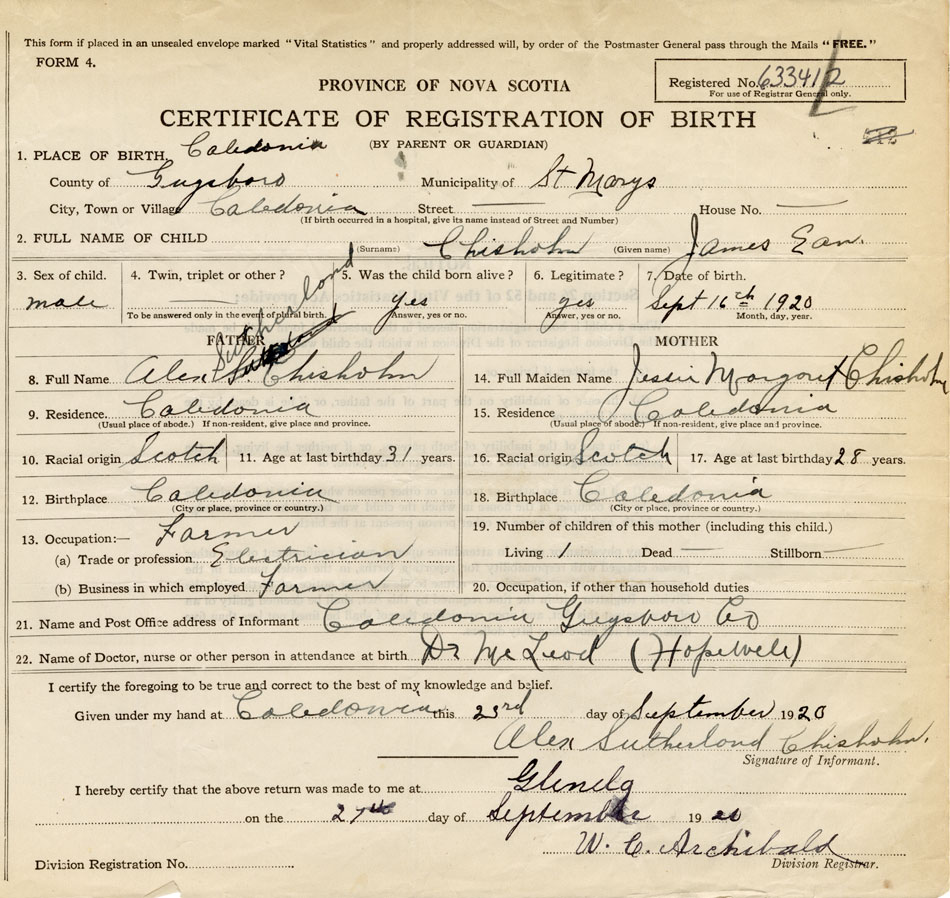 This form if placed in an unsealed envelope marked "Vital Statistics" and properly addressed will, by order of the Postmaster General pass through the Mails "FREE."
FORM 4.
PROVINCE OF NOVA SCOTIA
Registered No. 63341/2
For use of Registrar General only.
CERTIFICATE OF REGISTRATION OF BIRTH
(BY PARENT OR GUARDIAN)
1. PLACE OF BIRTH, Caledonia
County of Guysboro Municipality of St Marys
City, Town or Village Caledonia Street House No.
(If birth occurred in a hospital, give its name instead of Street and Number)
2. FULL NAME OF CHILD (Surname) Chisholm (Given name) James Ean.
3. Sex of child. 4. Twin, triplet or other? 5. Was the child born alive? 6. Legitimate? 7. Date of birth.
male yes yes Sept 16th 1920
To be answered only in the event of plural birth. Answer, yes or no. Answer, yes or no. Month, day, year.
FATHER MOTHER
Sutherland
8. Full Name Alex S. Chisholm 14. Full Maiden Name Jessie Margaret Chisholm
9. Residence. Caledonia 15. Residence Caledonia
(Usual place of abode.) If non-resident, give place and province. (Usual place of abode.) If non-resident, give place and province.
10. Racial origin Scotch 11. Age at last birthday 31 years. 16. Racial origin Scotch 17. Age at last birthday 28 years.
12. Birthplace Caledonia 18. Birthplace Caledonia
(City or place, province or country.) (City or place, province or country.)
13. Occupation:— Farmer 19. Number of children of this mother (including this child.)
(a) Trade or profession Electrician Living 1 Dead — Stillborn —
(b) Business in which employed Farmer 20. Occupation, if other than household duties
21. Name and Post Office address of Informant Caledonia Guysboro Co
22. Name of Doctor, nurse or other person in attendance at birth Dr McLeod (Hopewell)
I certify the foregoing to be true and correct to the best of my knowledge and belief.
Given under my hand at Caledonia this 23rd day of September 1920
Alex Sutherland Chisholm.
Signature of Informant.
I hereby certify that the above return was made to me at Glenelg
on the 27th day of September 1920
W. C. Archibald
Division Registration No. Division Registrar.